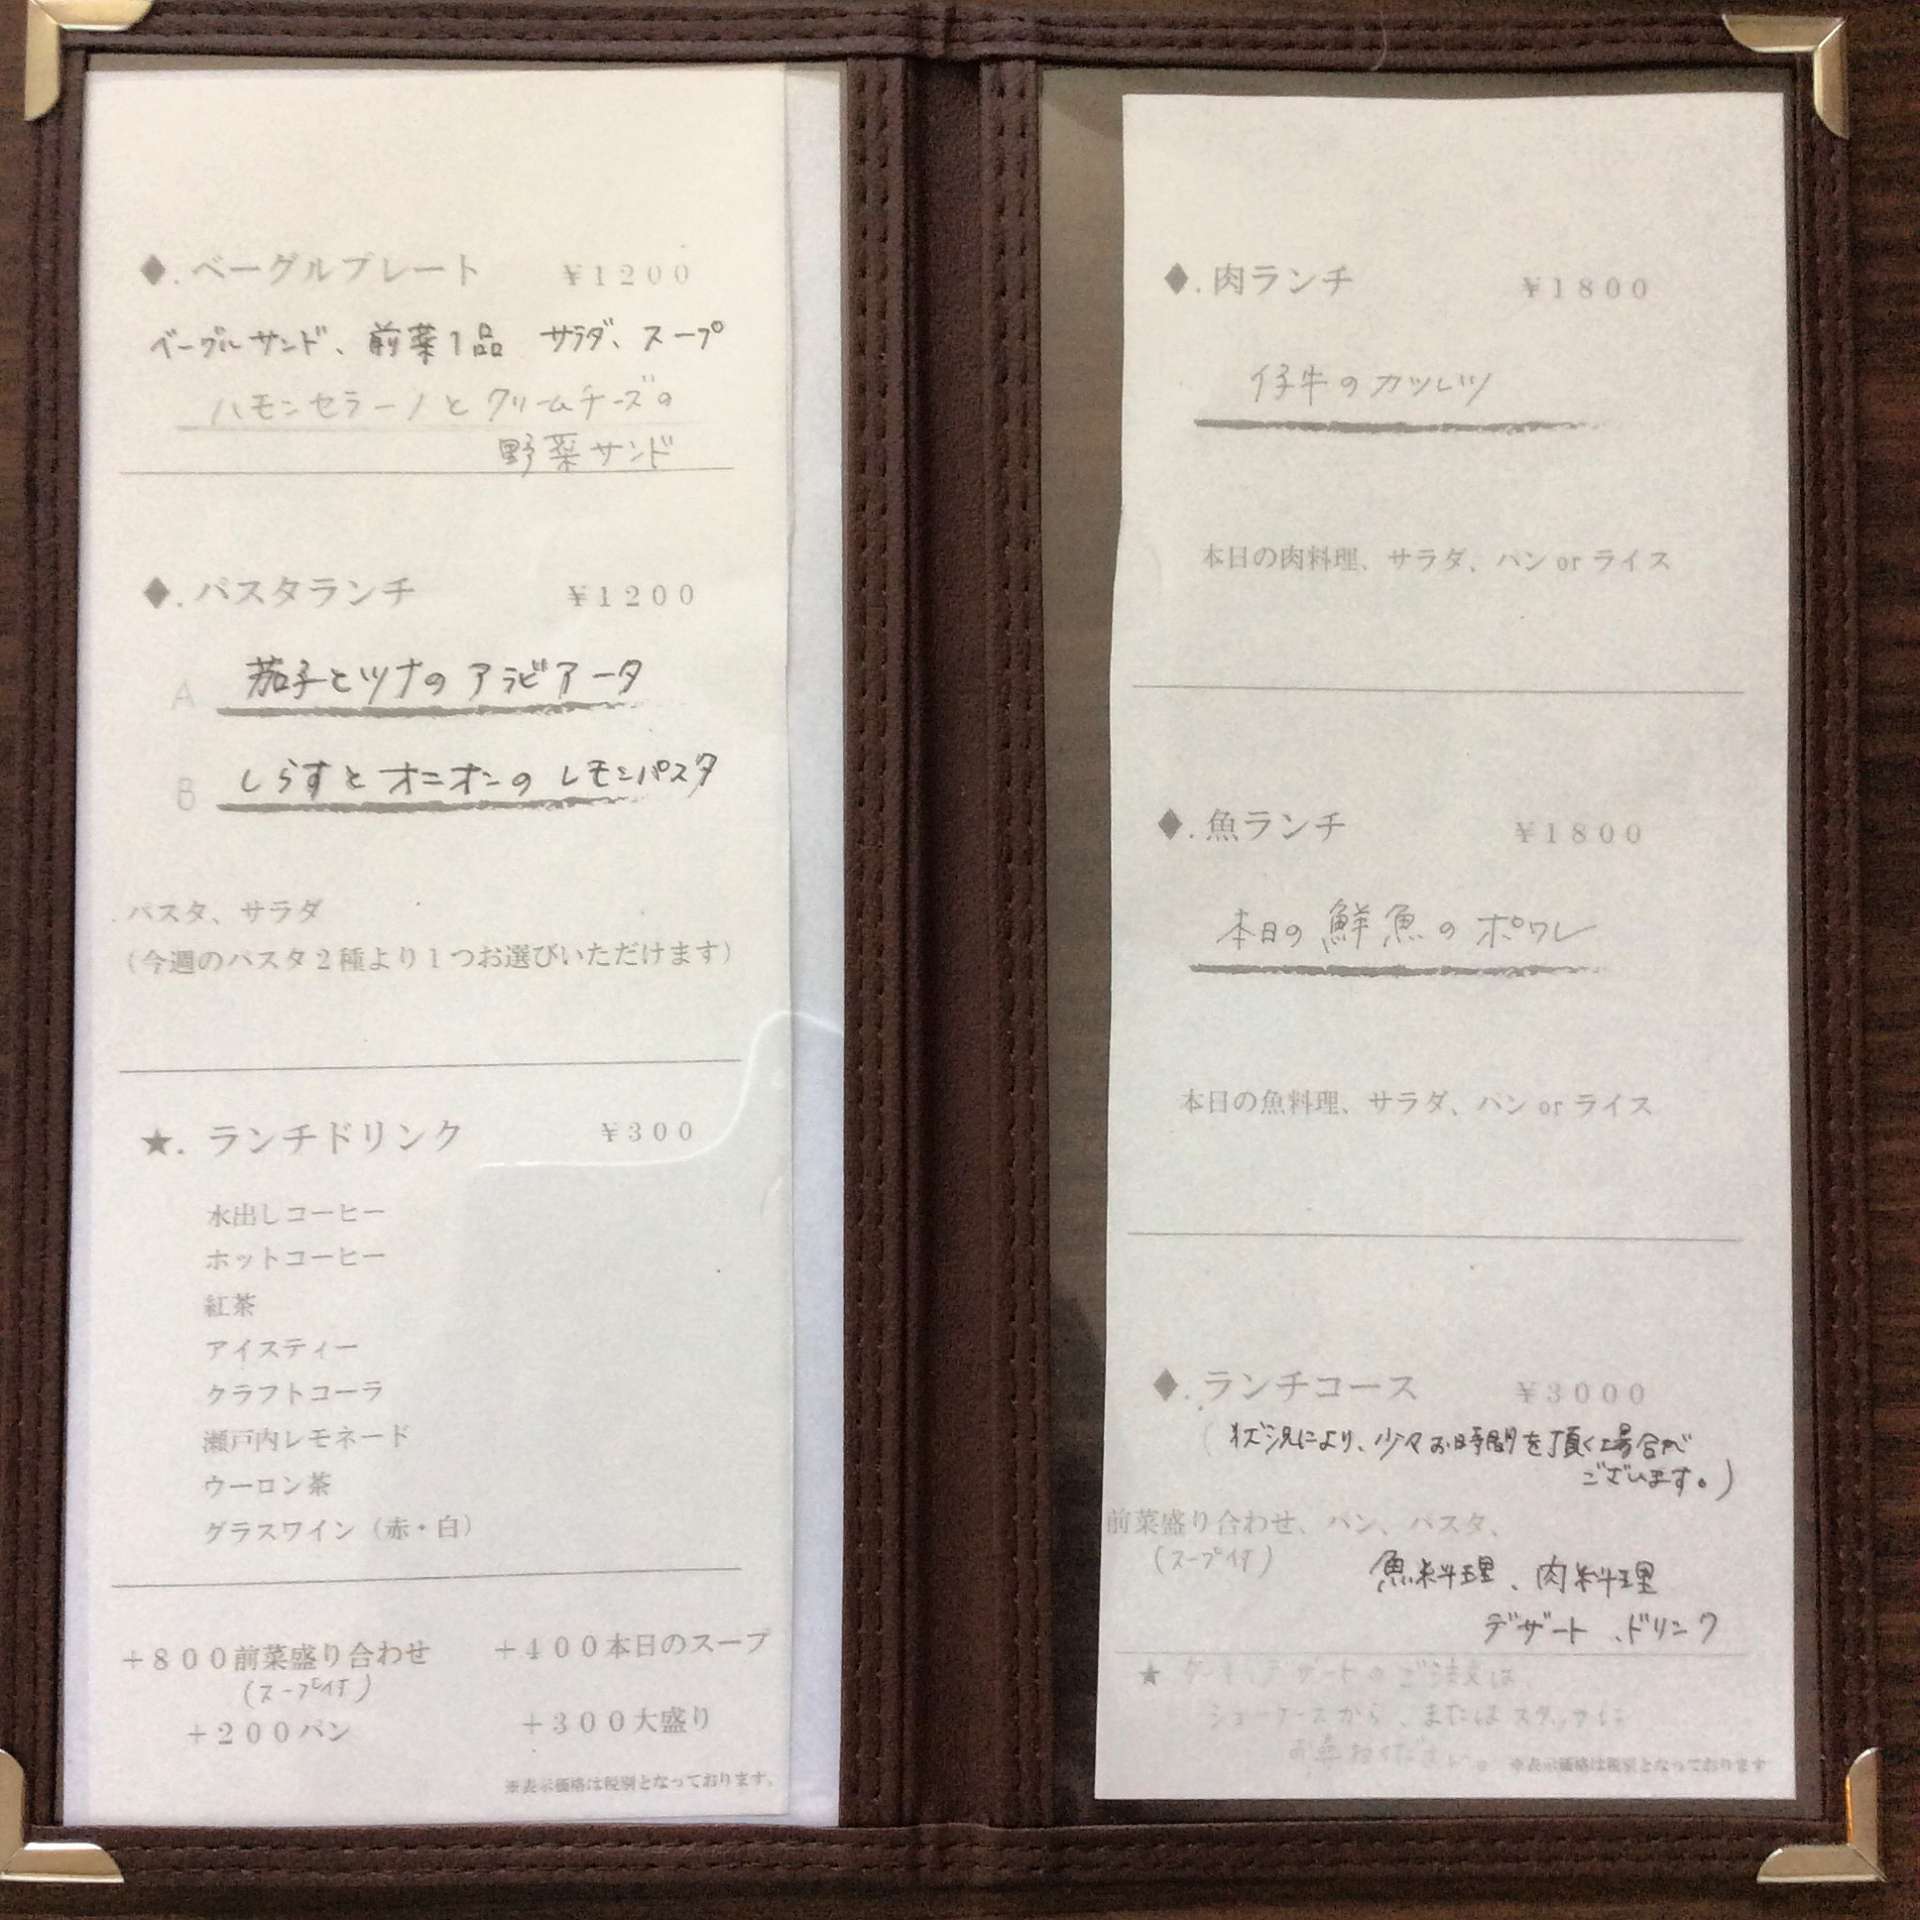 ◆. ベーグルプレート ¥1200
ベーグルサンド、前菜1品 サラダ、スープ
ハモンセラーノとクリームチーズの
野菜サンド
◆. パスタランチ ¥1200
A 茄子とツナのアラビアータ
B しらすとオニオンのレモンパスタ
パスタ、サラダ
(今週のパスタ2種より1つお選びいただけます)
★. ランチドリンク ¥300
水出しコーヒー
ホットコーヒー
紅茶
アイスティー
クラフトコーラ
瀬戸内レモネード
ウーロン茶
グラスワイン(赤・白)
+800前菜盛り合わせ +400本日のスープ
(スープ付)
+200パン +300大盛り
※表示価格は税別となっております。
◆. 肉ランチ ¥1800
仔牛のカツレツ
本日の肉料理、サラダ、パン or ライス
◆. 魚ランチ ¥1800
本日の鮮魚のポワレ
本日の魚料理、サラダ、パン or ライス
◆. ランチコース ¥3000
(状況により、少々お時間を頂く場合が
ございます。)
前菜盛り合わせ、パン、パスタ、
(スープ付)
魚料理、肉料理
デザート、ドリンク
★ ケーキ、デザートのご注文は、
ショーケースから、またはスタッフに
お尋ねください。 ※表示価格は税別となっております